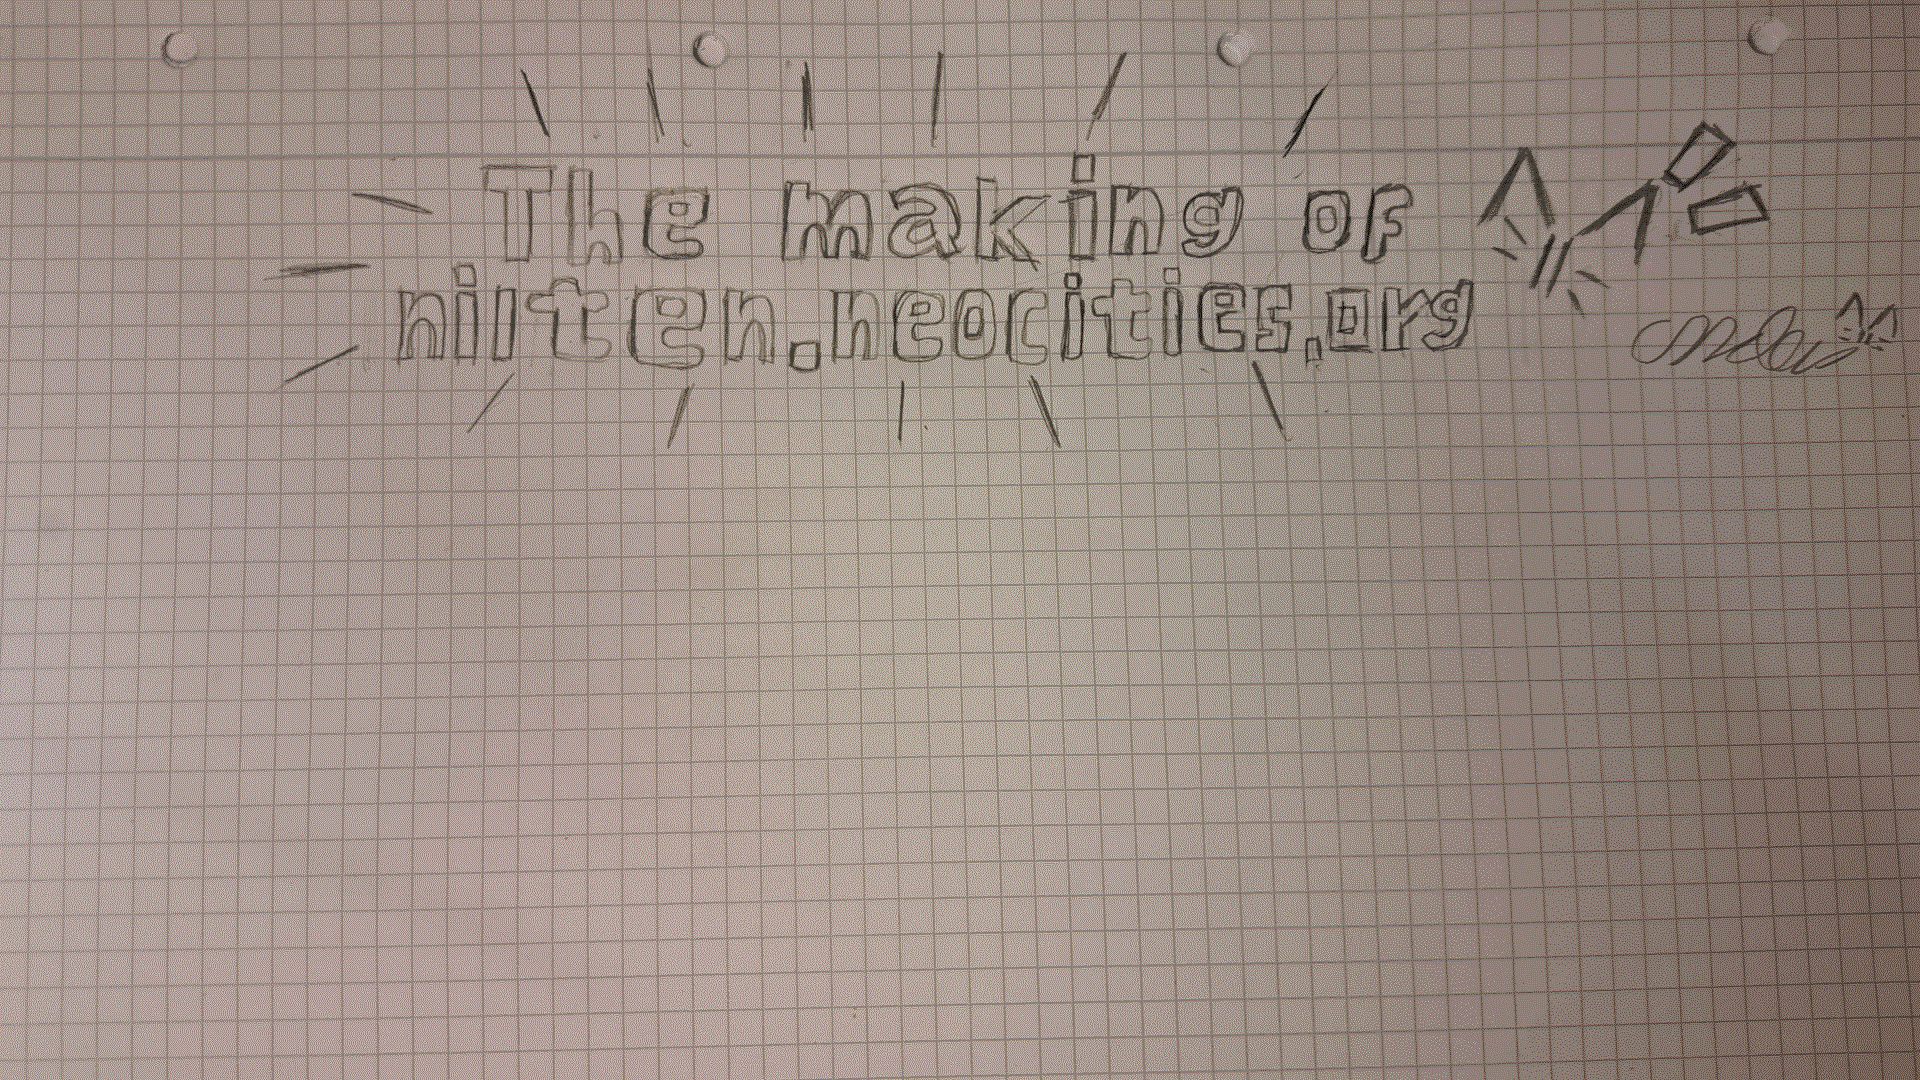 The making of
nilten.neocities.org